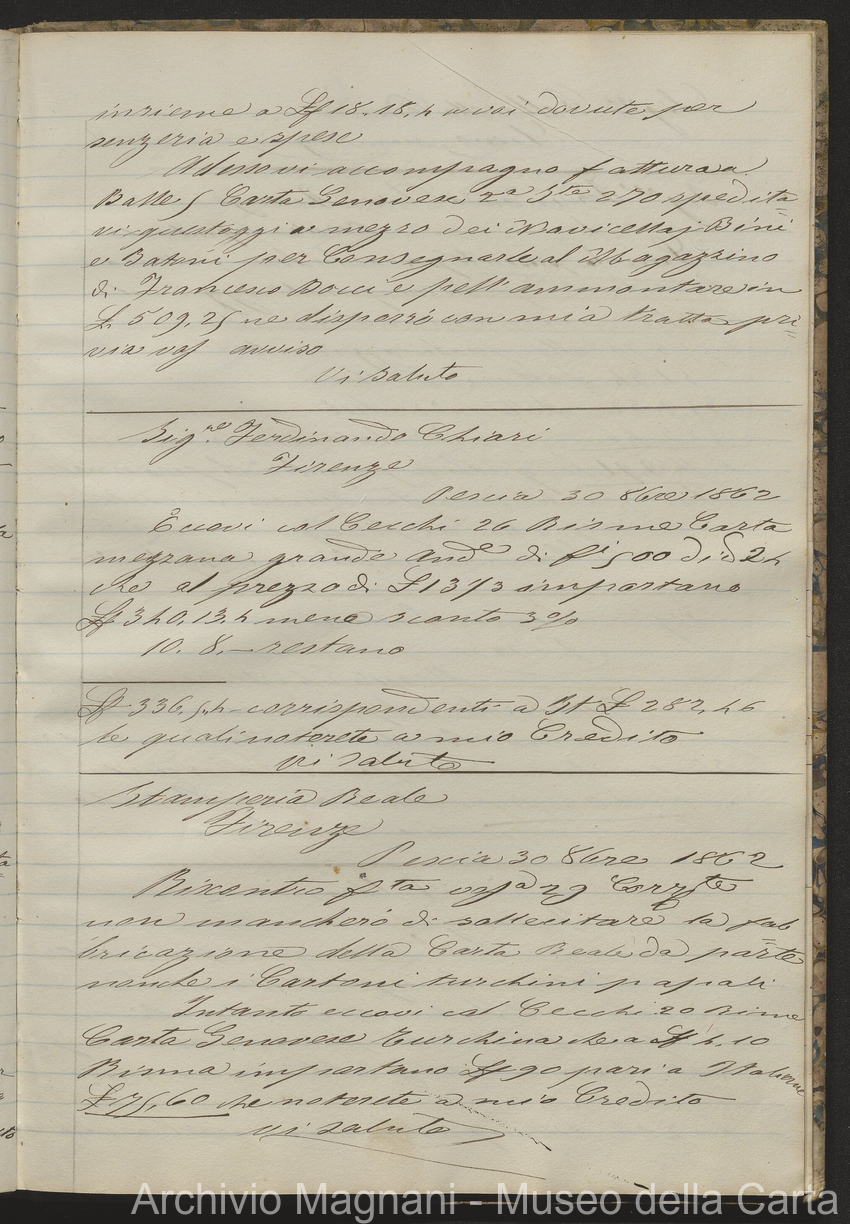 insieme a £ 18. 18. 4 a voi dovute per
senzeria e spese
Adesso vi accompagno fattura a
Balle 5 Carta Genovese 2a 270 spedita=
vi quest'oggi a mezzo dei Navicellaj Bini
e Batoni per Consegnarle al Magazzino
di Francesco Bocci e pell'ammontare in
£ 509,25 ne disporrò con mia tratta pri=
via vos avviso
Vi Saluto
Sigre Ferdinando Chiari
Firenze
Pescia 30 8bre 1862
Eccovi col Cecchi 26 Risme Carta
mezzana grande di fi 500 di 24
che al prezzo di £ 13 /3 importano
£ 340. 13. 4 meno sconto 3%
10. 8. — restano
£ 336. 5. 4 corrispondenti a It £ 282,46
le quali noterete a mio Credito
Vi Saluto
Stamperia Reale
Firenze
Pescia 30 8bre 1862
29 Corrte
non mancherò di sollecitare la fab=
bricazione della Carta Reale da parte
nonche i Cartoni turchini papali
Intanto eccovi col Cecchi 20 Risme
Carta Genovese Turchina che a £ 4. 10
Risma importano £ 90 pari a Italiane
£ 75,60 che noterete a mio Credito
Vi Saluto
Archivio Magnani - Museo della Carta